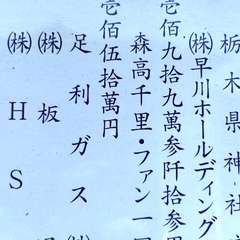 栃木県神社
㈱早川ホールディング
壱佰九拾九萬参阡拾参
森高千里・ファン一
壱佰伍拾萬円
足利ガス
㈱板
㈱HS